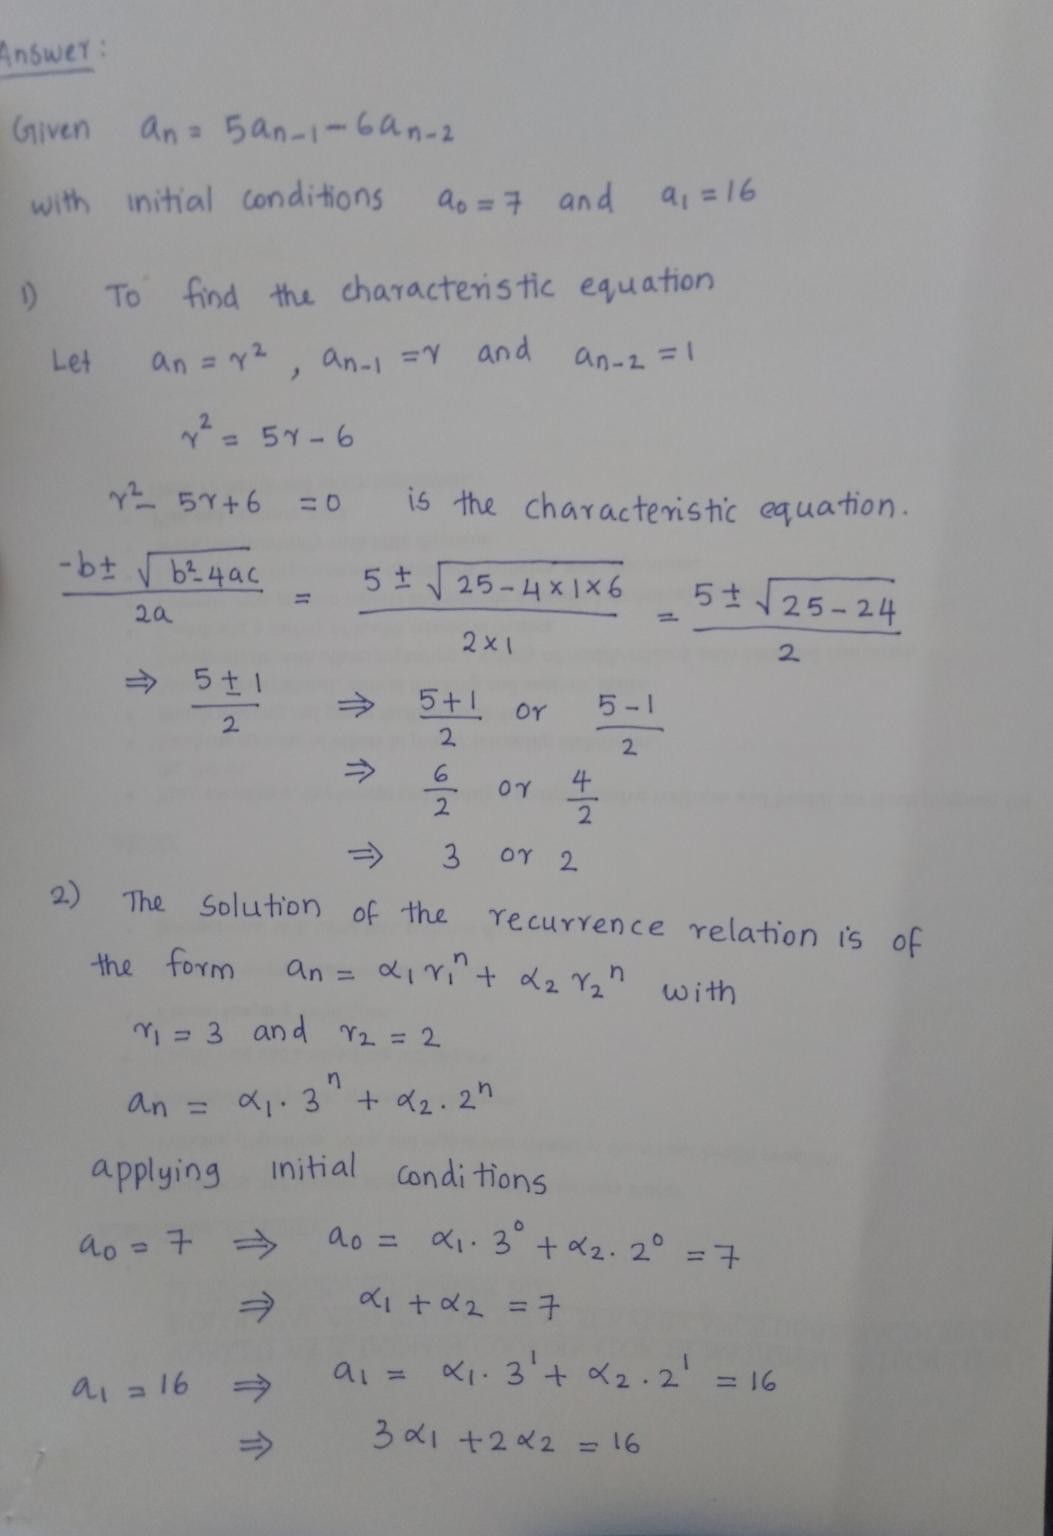 Answer:
Given an = 5an-1 - 6an-2
with initial conditions a0 = 7 and a1 = 16
1) To find the characteristic equation
Let an = r², an-1 = r and an-2 = 1
r² = 5r - 6
r² - 5r + 6 = 0 is the characteristic equation.
(-b ± √(b² - 4ac))/2a = (5 ± √(25 - 4×1×6))/(2×1) = (5 ± √(25 - 24))/2
⇒ (5 ± 1)/2 ⇒ (5+1)/2 or (5-1)/2
⇒ 6/2 or 4/2
⇒ 3 or 2
2) The solution of the recurrence relation is of
the form an = α1 r1ⁿ + α2 r2ⁿ with
r1 = 3 and r2 = 2
an = α1 . 3ⁿ + α2 . 2ⁿ
applying initial conditions
a0 = 7 ⇒ a0 = α1 . 3⁰ + α2 . 2⁰ = 7
⇒ α1 + α2 = 7
a1 = 16 ⇒ a1 = α1 . 3¹ + α2 . 2¹ = 16
⇒ 3α1 + 2α2 = 16